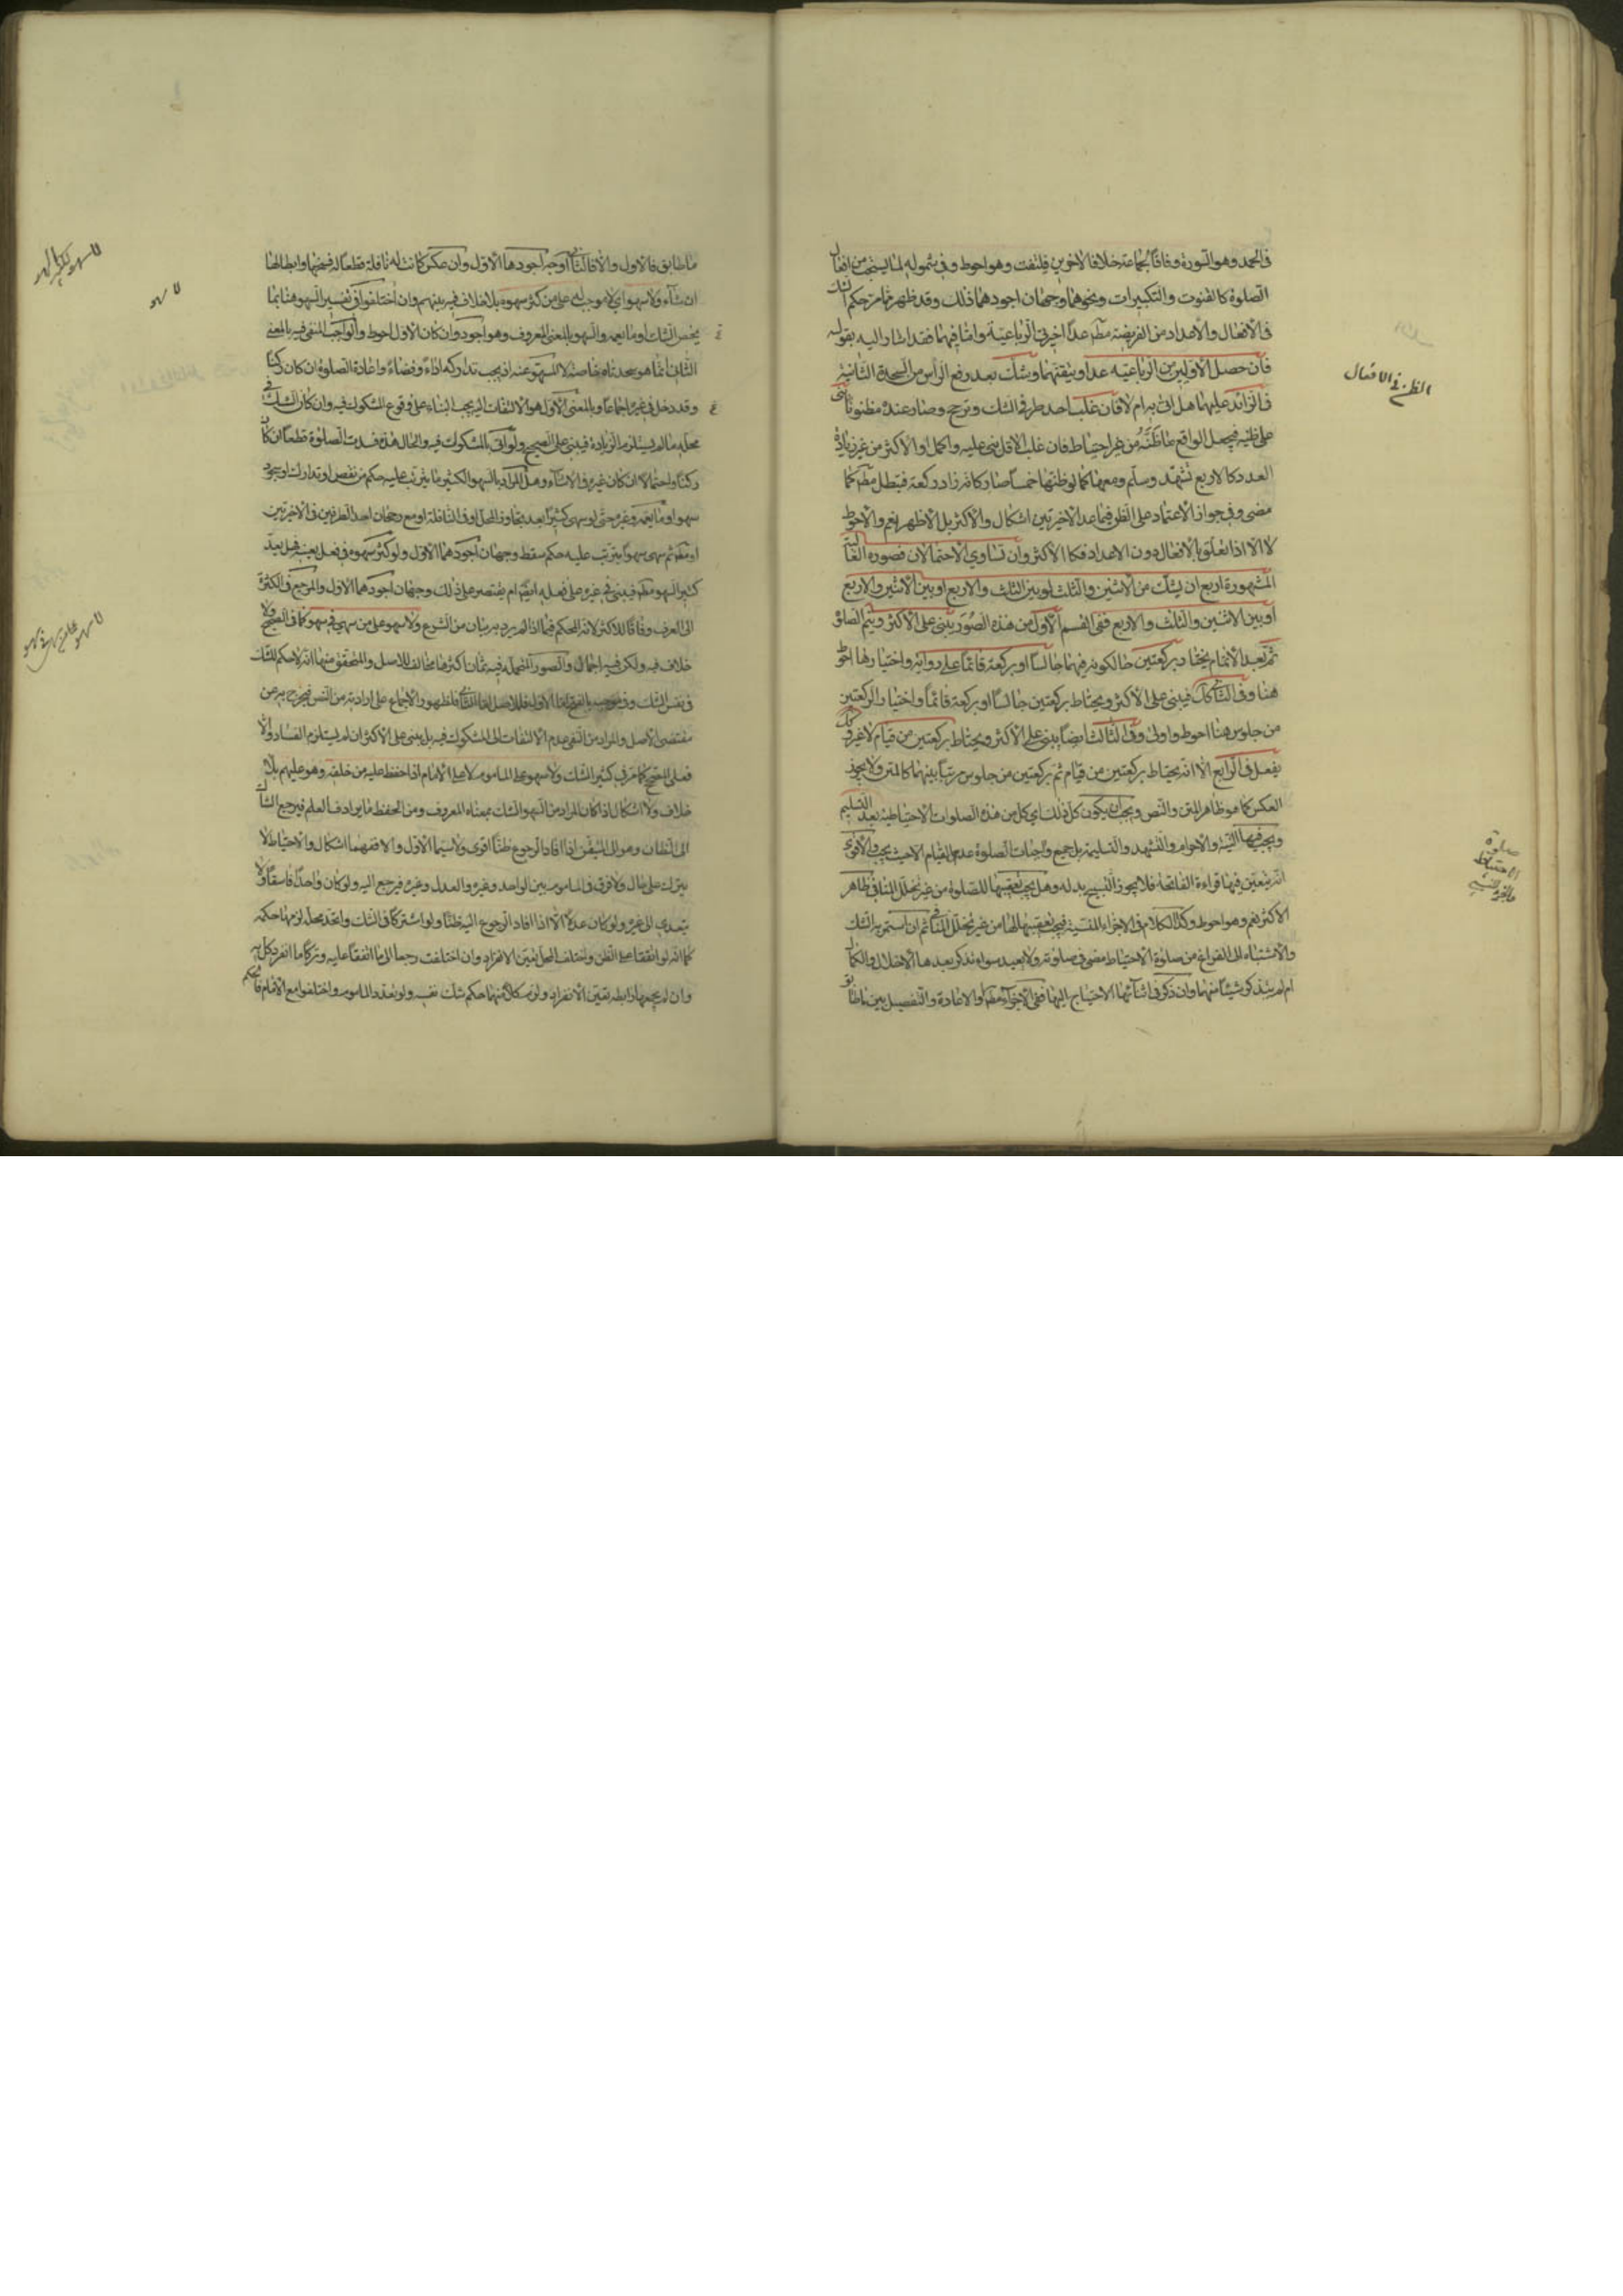 في الحمد وهو السورة وفاقا لجماعة خلافا لاخرين فلتفت وهو احوط وفي شموله لما يستحب من افعال
الصلوة كالقنوت والتكبيرات ونحوهما وجهان اجودهما ذلك وقد ظهر تمام حكم الشك
في الافعال والاعداد من الفريضة مطم عدا اخيرتي الرباعية واما فيهما فقد اشار اليه بقوله
فان حصل الاوليين من الرباعية عدا ويقنهما وشك بعد رفع الرأس من السجدة الثانية
في الزائد عليهما هل اتى به ام لا فان غلب احد طرفي الشك وترجح وصار عنده مظنونا بنى
على ظنه فيجعل الواقع ما ظنه من غير احتياط فان غلب الاقل بنى عليه واكمل او الاكثر من غير زيادة
العدد كالاربع تشهد وسلم ومعها كما لو ظنها خمسا صار كانه زاد ركعة فتبطل مطم كما
مضى وفي جواز الاعتماد على الظن فيما عدا الاخيرتين اشكال والاكثر بل الاظهر نعم والاحوط
لا الا اذا تعلق بالافعال دون الاعداد فكالاكثر وان تساوي الاحتمالان فصوره الغالبة
المشهورة اربع ان يشك من الاثنين والثلث او بين الثلث والاربع او بين الاثنين والاربع
او بين الاثنين والثلث والاربع ففي القسم الاول من هذه الصور يبنى على الاكثر ويتم الصلوة
ثم بعد الاتمام يحتاط بركعتين حالكونه فيهما جالسا او بركعة قائما على رواية واختيارها احوط
هنا وفي الثاني كك فيبنى على الاكثر ويحتاط بركعتين جالسا او بركعة قائما واختيار الركعتين
من جلوس هنا احوط واولى وفي الثالث ايضا يبنى على الاكثر ويحتاط بركعتين من قيام لا غير وكك
يفعل في الرابع الا انه يحتاط بركعتين من قيام ثم بركعتين من جلوس مرتبا بينهما كالمتن ولا يجوز
العكس كما هو ظاهر المتن والنص ويجب ان يكون كل ذلك اي كل من هذه الصلوات الاحتياطية بعد التسليم
ويجب فيها النية والاحرام والتشهد والتسليم بل جميع واجبات الصلوة عدا القيام الا حيث يجب والاقوى
انه يتعين فيها قراءة الفاتحة فلا يجوز التسبيح بدله وهل يجب تعقيبها للصلوة من غير تخلل المنافي ظاهر
الاكثر نعم وهو احوط وكذا الكلام في الاجزاء المنسية فيجب تعقيبها لها من غير تخلل المنافي ثم ان استمر به الشك
والاشتباه الى الفراغ من صلوة الاحتياط مضى في صلوته ولا يعيد سواء تذكر بعدها الاخلال والكمال
ام لم يتذكر شيئا منهما وان ذكر في اثنائها الاحتياج اليها ففي الاجزاء مطم او الاعادة والتفصيل بين ما طابق
الظن في الافعال
صلوة
الاحتياط
ما طابق فالاول والا فالثاني اوجه اجودها الاول وان عكس كانت له نافلة قطعا له فيتمها وابطالها
ان شاء ولا سهو اي لا موجب له على من كثر سهوه بلا خلاف فيه بينهم وان اختلفوا في تفسير السهو هنا بما
يخص الشك او ما يعمه والسهو بالمعنى المعروف وهو اجود وان كان الاول احوط والواجب المنفي فيه بالمعنى
الثاني انما هو سجدتاه خاصة لا المسهو عنه اذ يجب تداركه اداء وقضاء واعادة الصلوة ان كان ركنا
وقد دخل في غيره اجماعا وبالمعنى الاول هو الالتفات اليه فيجب البناء على وقوع المشكوك فيه وان كان الشك في
محله ما لم يستلزم الزيادة فيبنى على الصحيح ولو اتى بالمشكوك فيه والحال هذه فسدت الصلوة قطعا ان كان
ركنا واحتمالا ان كان غيره والاثناء وهل المراد بالسهو الكثير ما يترتب عليه حكم من نقص او تدارك او سجود
سهو او ما يعمه وغيره حتى لو سهى كثيرا بعد تجاوز المحل او في النافلة او مع رجحان احد الطرفين في الاخيرتين
او مطم ثم سهى سهوا يترتب عليه حكم سقط وجهان اجودهما الاول ولو كثر سهوه في فعل بعينه فهل يعد
كثير السهو مطم فيبنى في غيره على فعله ايضا ام يقتصر على ذلك وجهان اجودهما الاول والمرجع في الكثرة
الى العرف وفاقا للاكثر لانه المحكم فيما لم يرد به بيان من الشرع ولا سهو على من سهى في سهو كما في الصحيح ولا
خلاف فيه ولكن فيه اجمال والصور المحتملة فيه ثمان اكثرها مخالف للاصل والمتحقق منها انه لا حكم للشك
في نفس الشك وفي موجبه
مقتضى الاصل والمراد من النفي عدم الالتفات الى المشكوك فيه بل يبنى على الاكثر ان لم يستلزم الفساد والا
فعلى الصحيح كما مر في كثير الشك ولا سهو على الماموم ولا على الامام اذا حفظ عليه من خلفه وهو عليهم بلا
خلاف ولا اشكال اذا كان المراد من السهو الشك بمعناه المعروف ومن الحفظ ما يرادف العلم فيرجع الشاك
الى الظان وهو الى المتيقن اذا افاد الرجوع ظنا اقوى ولا سيما الاول والا ففيهما اشكال والاحتياط لا
يترك على حال ولا فرق في الماموم بين الواحد وغيره والعدل وغيره فيرجع اليه ولو كان واحدا فاسقا ولا
يتعدى الى غيره ولو كان عدلا الا اذا افاد الرجوع اليه ظنا ولو اشتركا في الشك واتحد محله لزمهما حكمه
كما انه لو اتفقا على الظن واختلف المحل تعين الانفراد وان اختلفت رجعا الى ما اتفقا عليه وتركا ما انفرد كل به
وان لم يجمعهما رابطة تعين الانفراد ولزم كلا منهما حكم شك نفسه ولو تعدد الماموم واختلفوا مع الامام فالحكم
لا سهو